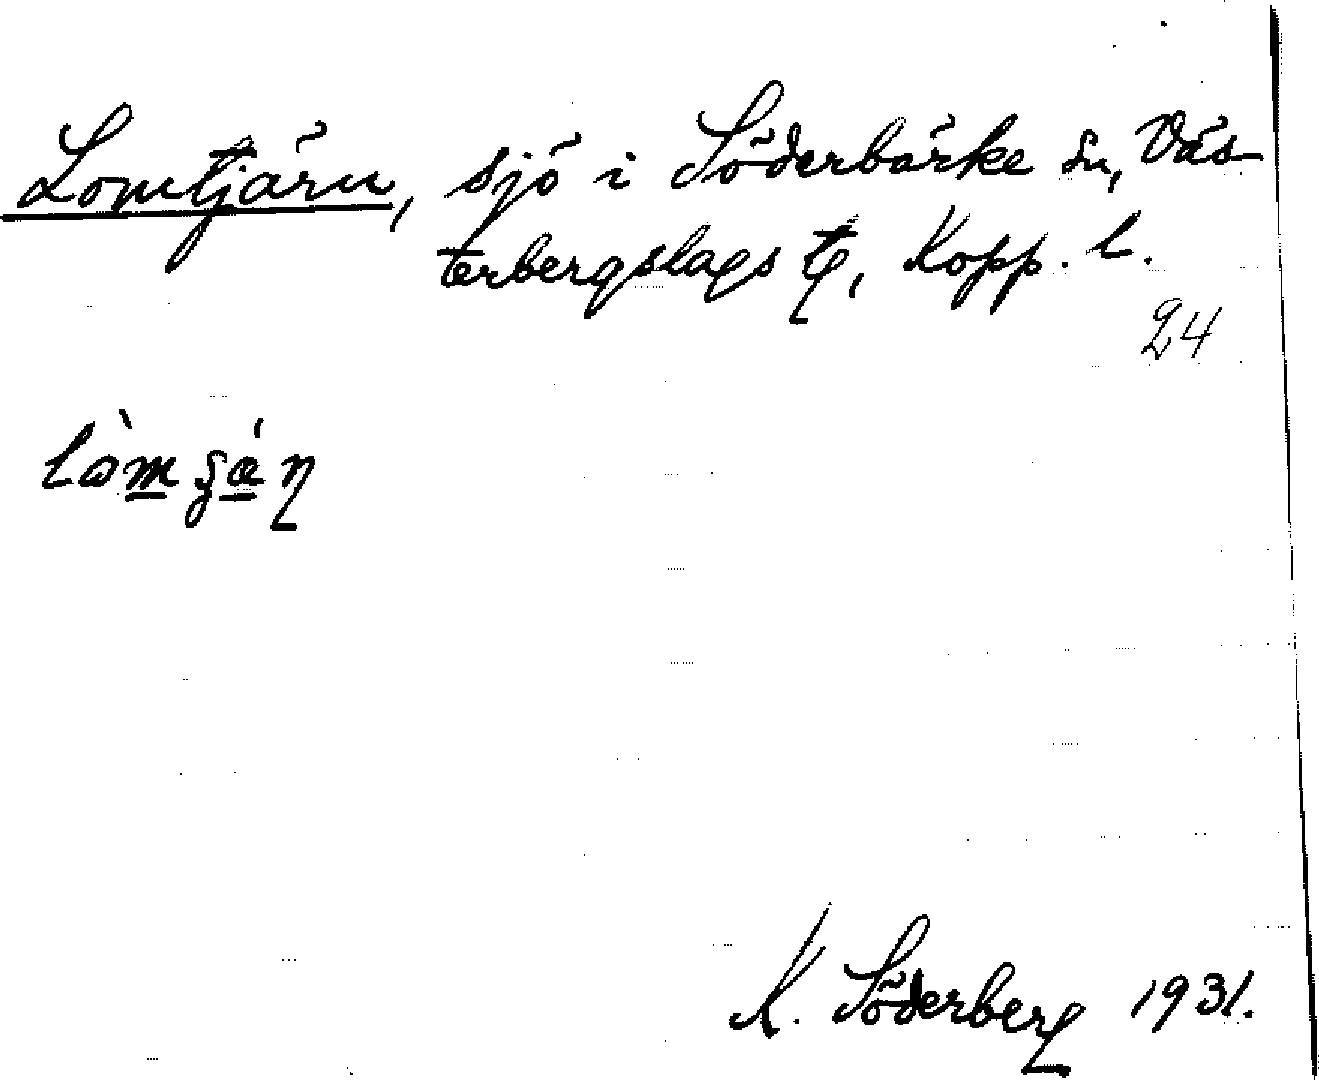 Lomtjärn, sjö i Söderbärke sn, Väs-
terbergslags tg, Kopp. l.
24
K. Söderberg 1931.